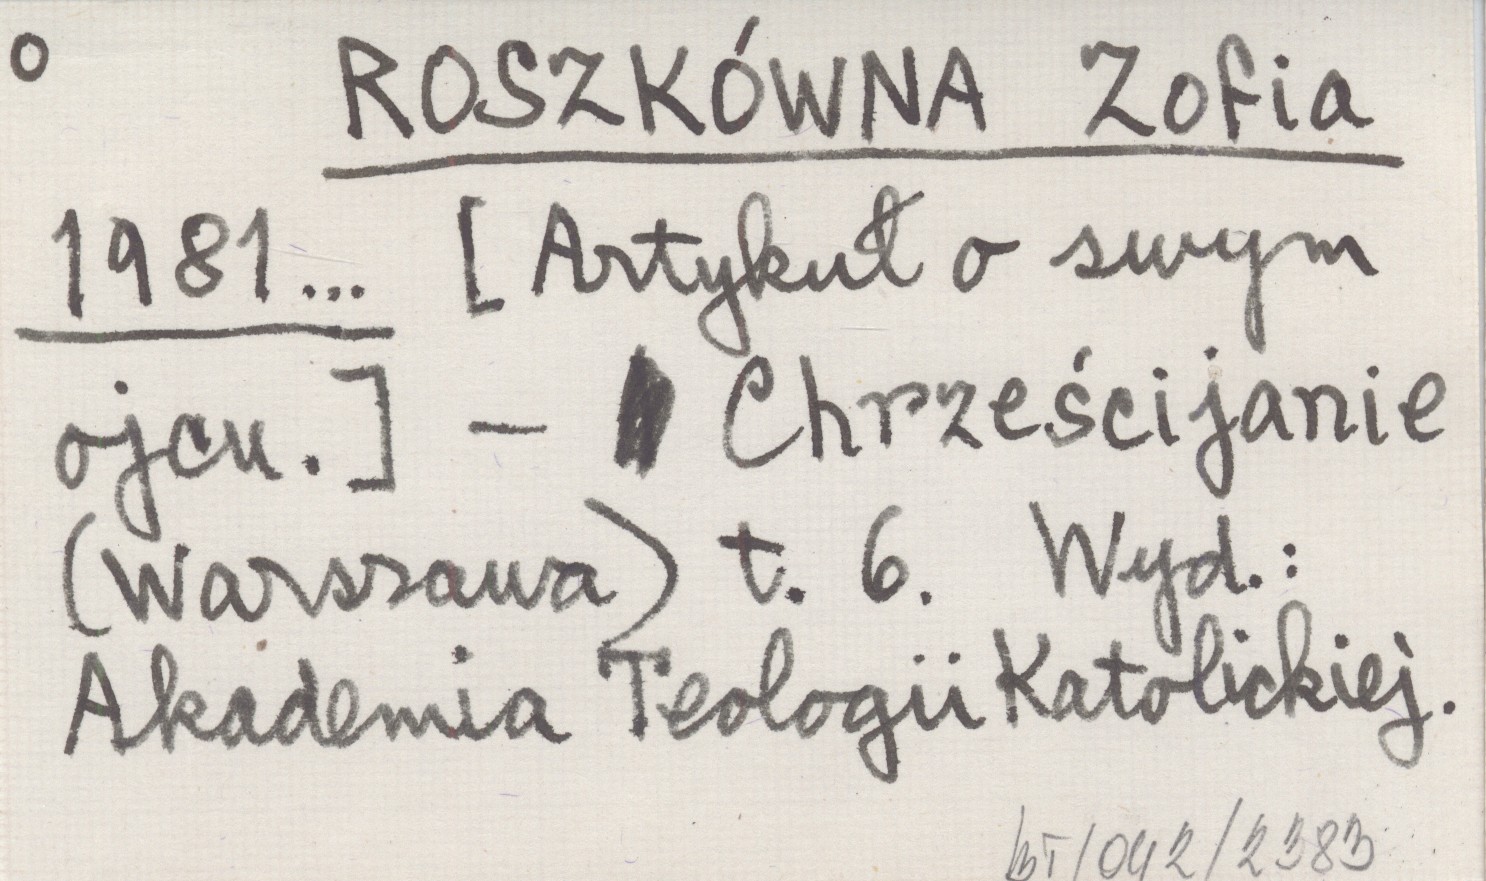 o ROSZKÓWNA Zofia
1981... [Artykuł o swym
ojcu.] - Chrześcijanie
(Warszawa) t. 6. Wyd.:
Akademia Teologii Katolickiej.
BT/042/2383